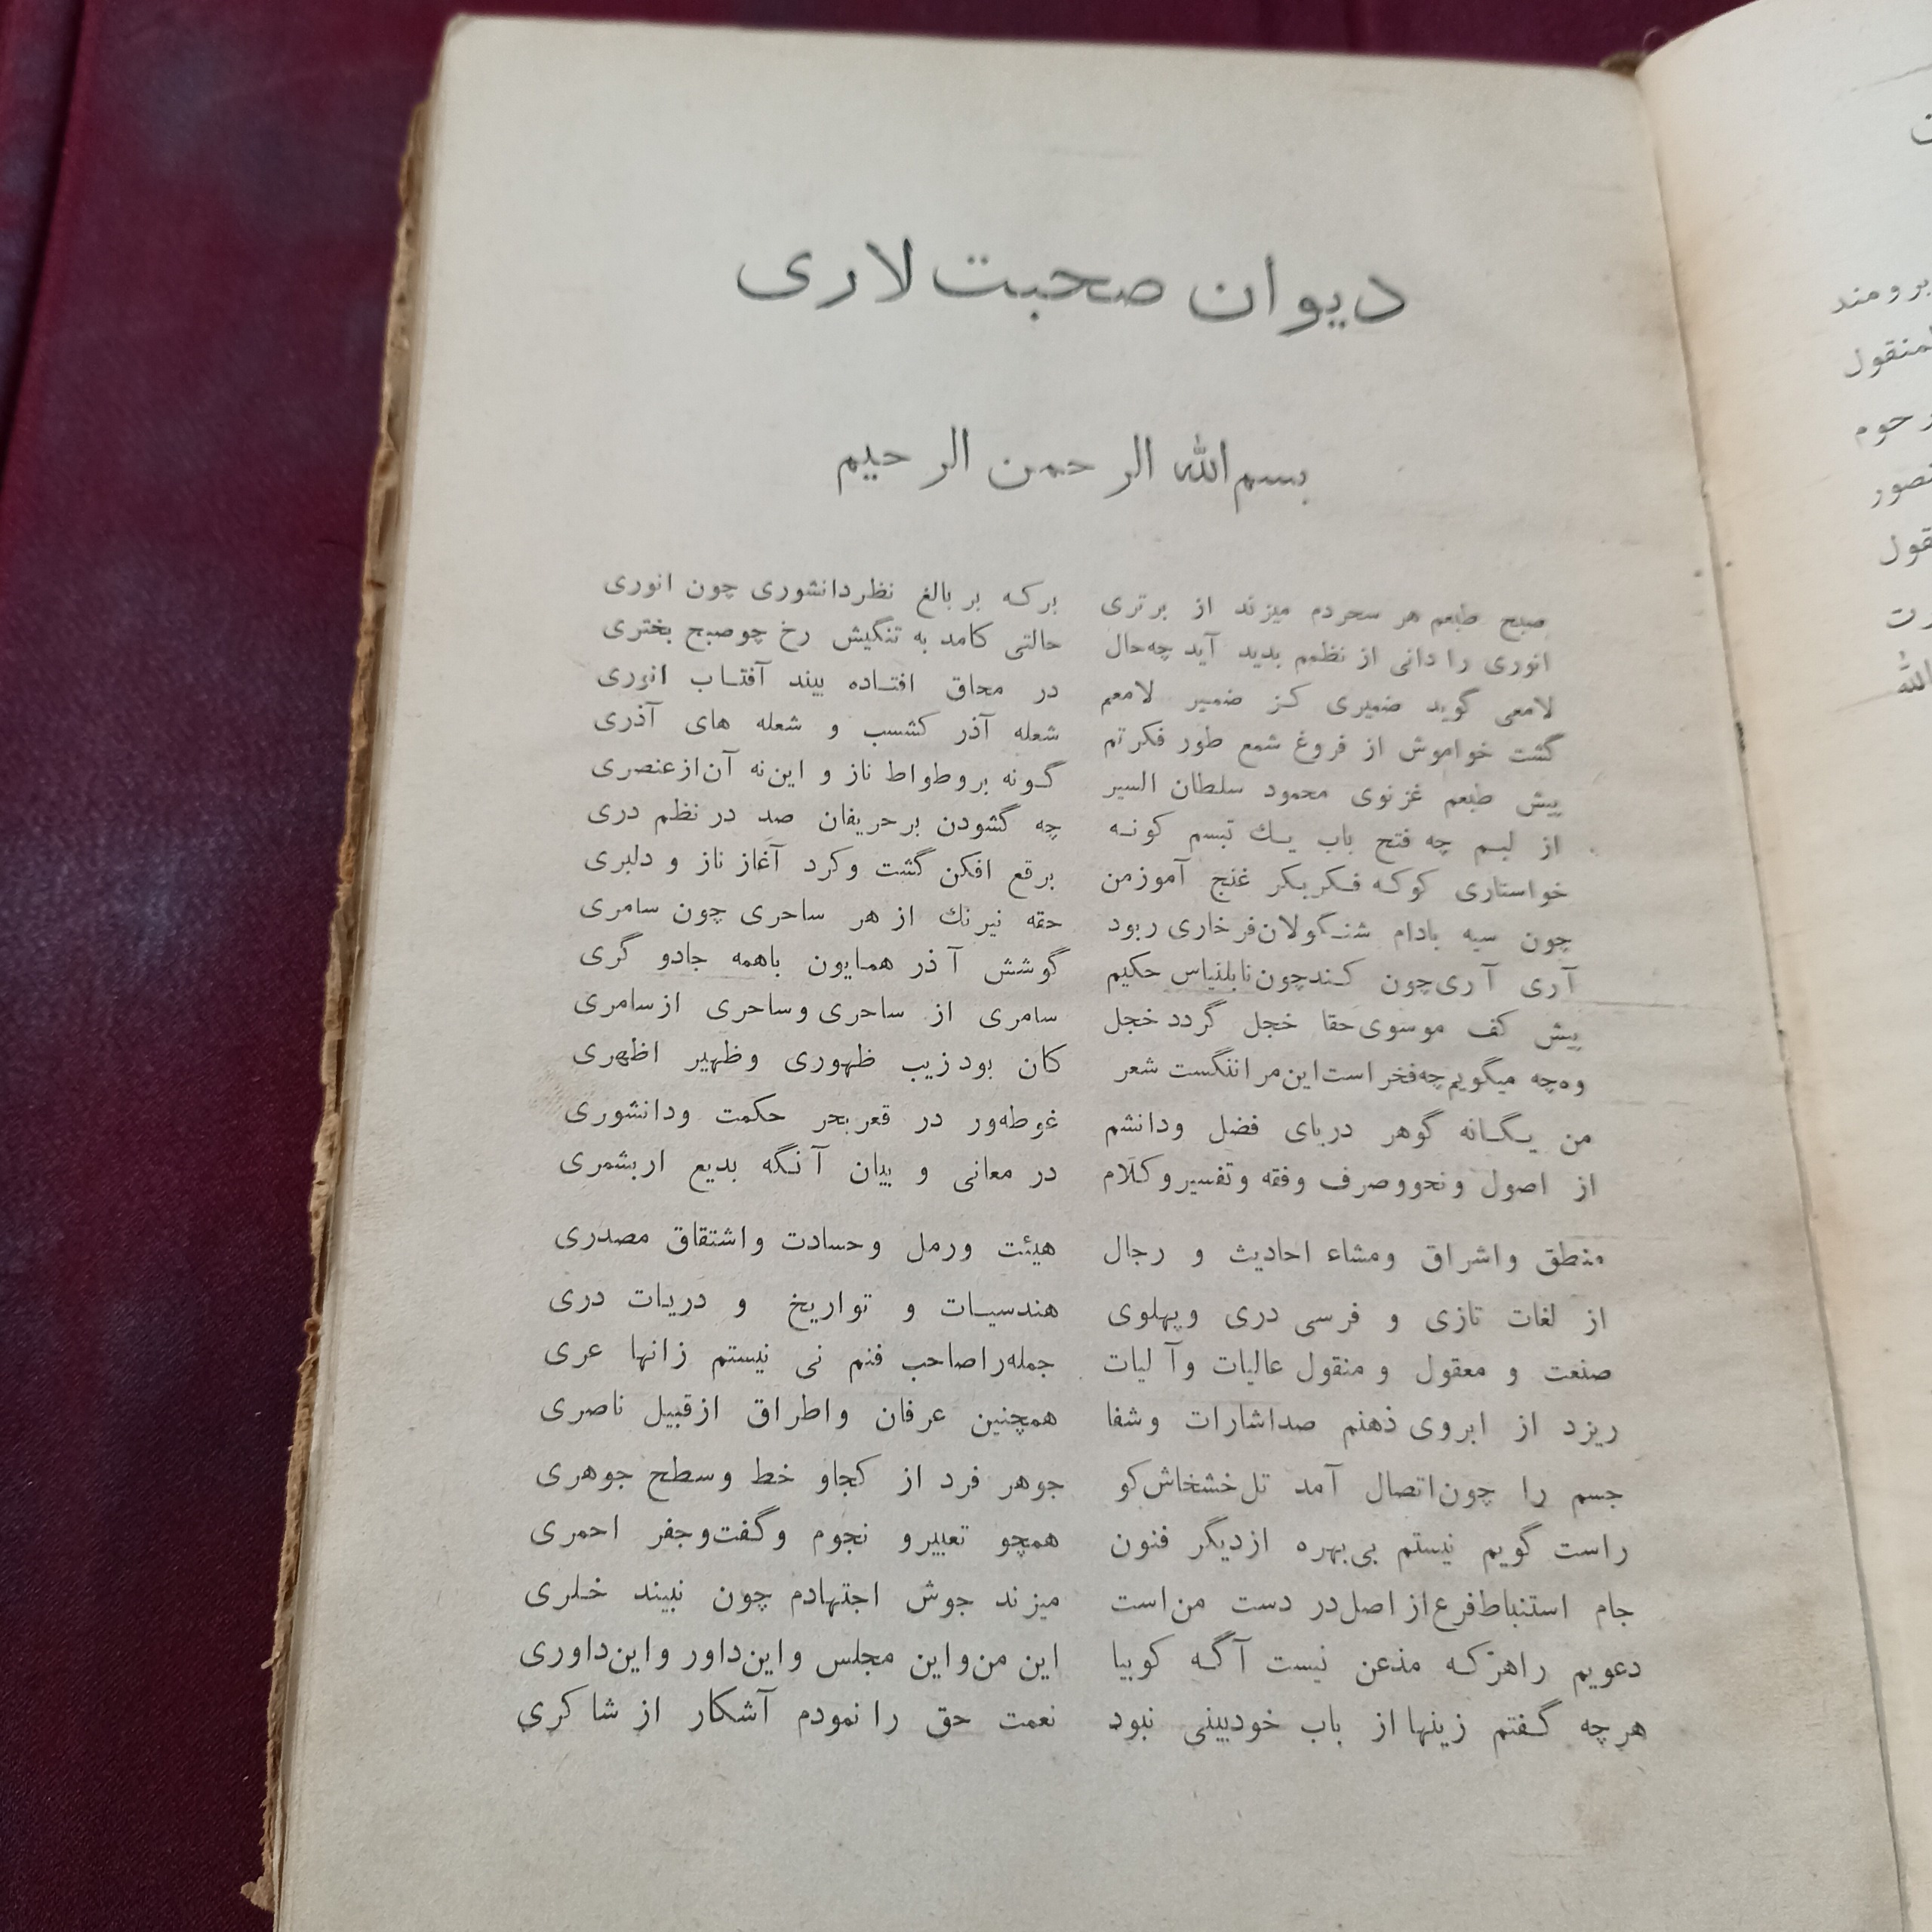 دیوان صحبت لاری
بسم الله الرحمن الرحیم
صبح طبعم هر سحردم میزند از برتری برکه بر بالغ نظردانشوری چون انوری
انوری را دانی از نظمم بدید آید چه‌حال حالتی کامد به تنگیش رخ چوصبح بختری
لامعی گوید ضمیری کز ضمیر لامعم در محاق افتاده بیند آفتاب انوری
گشت خواموش از فروغ شمع طور فکرتم شعله آذر کشسب و شعله های آذری
پیش طبعم غزنوی محمود سلطان السیر گونه بروطواط ناز و این‌نه آن‌ازعنصری
از لبم چه فتح باب یك تبسم کونه چه گشودن برحریفان صد در نظم دری
خواستاری کوکه فکربکر غنج آموزمن برقع افکن گشت وکرد آغاز ناز و دلبری
چون سیه بادام شنگولان‌فرخاری ربود حقه نیرنك از هر ساحری چون سامری
آری آری‌چون کندچون‌نابلنیاس حکیم گوشش آذر همایون باهمه جادو گری
پیش کف موسوی‌حقا خجل گردد خجل سامری از ساحری وساحری ازسامری
وه‌چه میگویم‌چه‌فخر است‌این‌مراننگست شعر کان بود زیب ظهوری وظهیر اظهری
من یگانه گوهر دریای فضل ودانشم غوطه‌ور در قعربحر حکمت ودانشوری
از اصول ونحووصرف وفقه وتفسیروکلام در معانی و بیان آنگه بدیع اربشمری
منطق واشراق ومشاء احادیث و رجال هیئت ورمل وحسادت واشتقاق مصدری
از لغات تازی و فرسی دری وپهلوی هندسیات و تواریخ و دریات دری
صنعت و معقول و منقول عالیات وآلیات جمله‌راصاحب فنم نی نیستم زانها عری
ریزد از ابروی ذهنم صداشارات وشفا همچنین عرفان واطراق ازقبیل ناصری
جسم را چون‌اتصال آمد تل‌خشخاش‌کو جوهر فرد از کجاو خط وسطح جوهری
راست گویم نیستم بی‌بهره ازدیگر فنون همچو تعبیرو نجوم وگفت‌وجفر احمری
جام استنباط‌فرع‌از اصل‌در دست من‌است میزند جوش اجتهادم چون نبیند خلری
دعویم راهرکه مذعن نیست آگه کوبیا این من‌واین مجلس واین‌داور واین‌داوری
هرچه گفتم زینها از باب خودبینی نبود نعمت حق را نمودم آشکار از شاکری
برومند
منقول